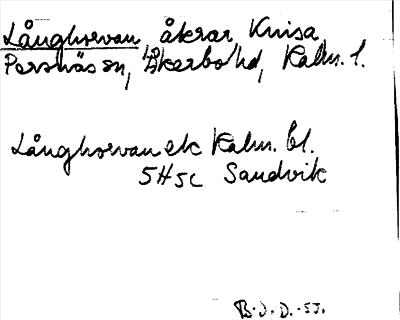 Långhorvan, åkrar, Knisa,
Persnäs sn, Åkerbo hd, Kalm. l.
Långhorvan ek Kalm. bl.
5H5c Sandvik
B.J.D. -53.